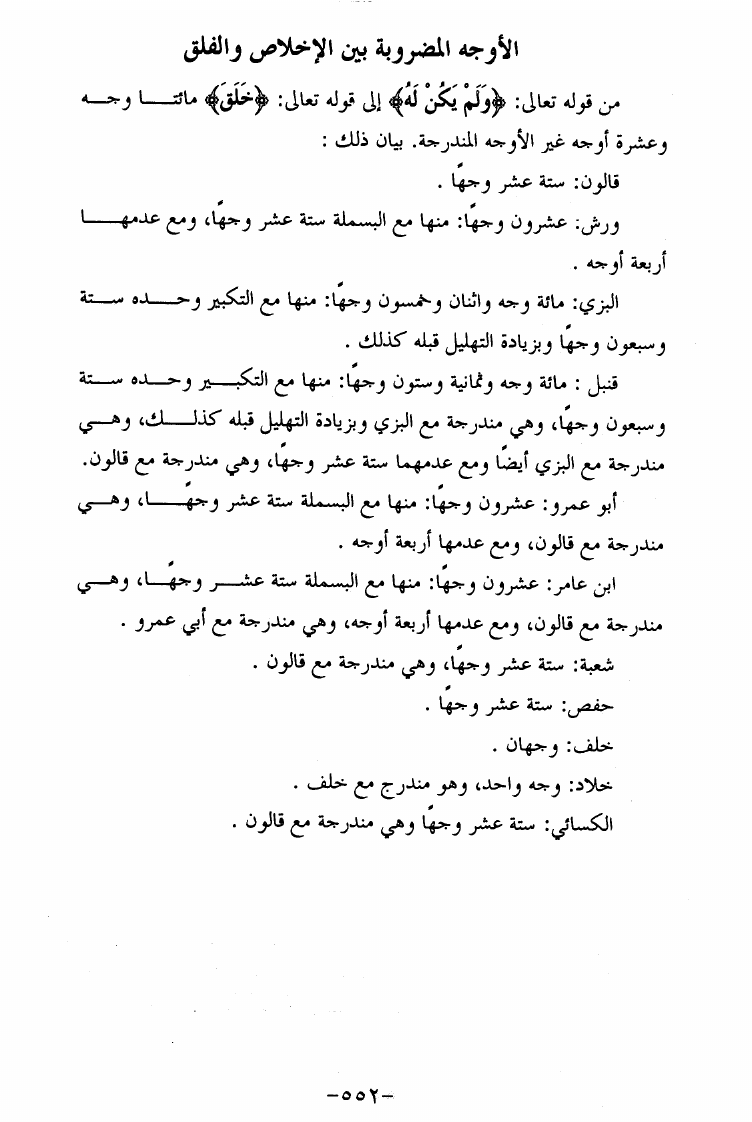 الأوجه المضروبة بين الإخلاص والفلق
من قوله تعالى: ﴿وَلَمْ يَكُنْ لَهُ﴾ إلى قوله تعالى: ﴿خَلَقَ﴾ مائتا وجه
وعشرة أوجه غير الأوجه المندرجة. بيان ذلك :
قالون: ستة عشر وجهًا .
ورش: عشرون وجهًا: منها مع البسملة ستة عشر وجهًا، ومع عدمها
أربعة أوجه .
البزي: مائة وجه واثنان وخمسون وجهًا: منها مع التكبير وحده ستة
وسبعون وجهًا وبزيادة التهليل قبله كذلك .
قنبل : مائة وجه وثمانية وستون وجهًا: منها مع التكبير وحده ستة
وسبعون وجهًا، وهي مندرجة مع البزي وبزيادة التهليل قبله كذلك، وهي
مندرجة مع البزي أيضًا ومع عدمهما ستة عشر وجهًا، وهي مندرجة مع قالون.
أبو عمرو: عشرون وجهًا: منها مع البسملة ستة عشر وجهًا، وهي
مندرجة مع قالون، ومع عدمها أربعة أوجه .
ابن عامر: عشرون وجهًا: منها مع البسملة ستة عشر وجهًا، وهي
مندرجة مع قالون، ومع عدمها أربعة أوجه، وهي مندرجة مع أبي عمرو .
شعبة: ستة عشر وجهًا، وهي مندرجة مع قالون .
حفص: ستة عشر وجهًا .
خلف: وجهان .
خلاد: وجه واحد، وهو مندرج مع خلف .
الكسائي: ستة عشر وجهًا وهي مندرجة مع قالون .
-٥٥٢-